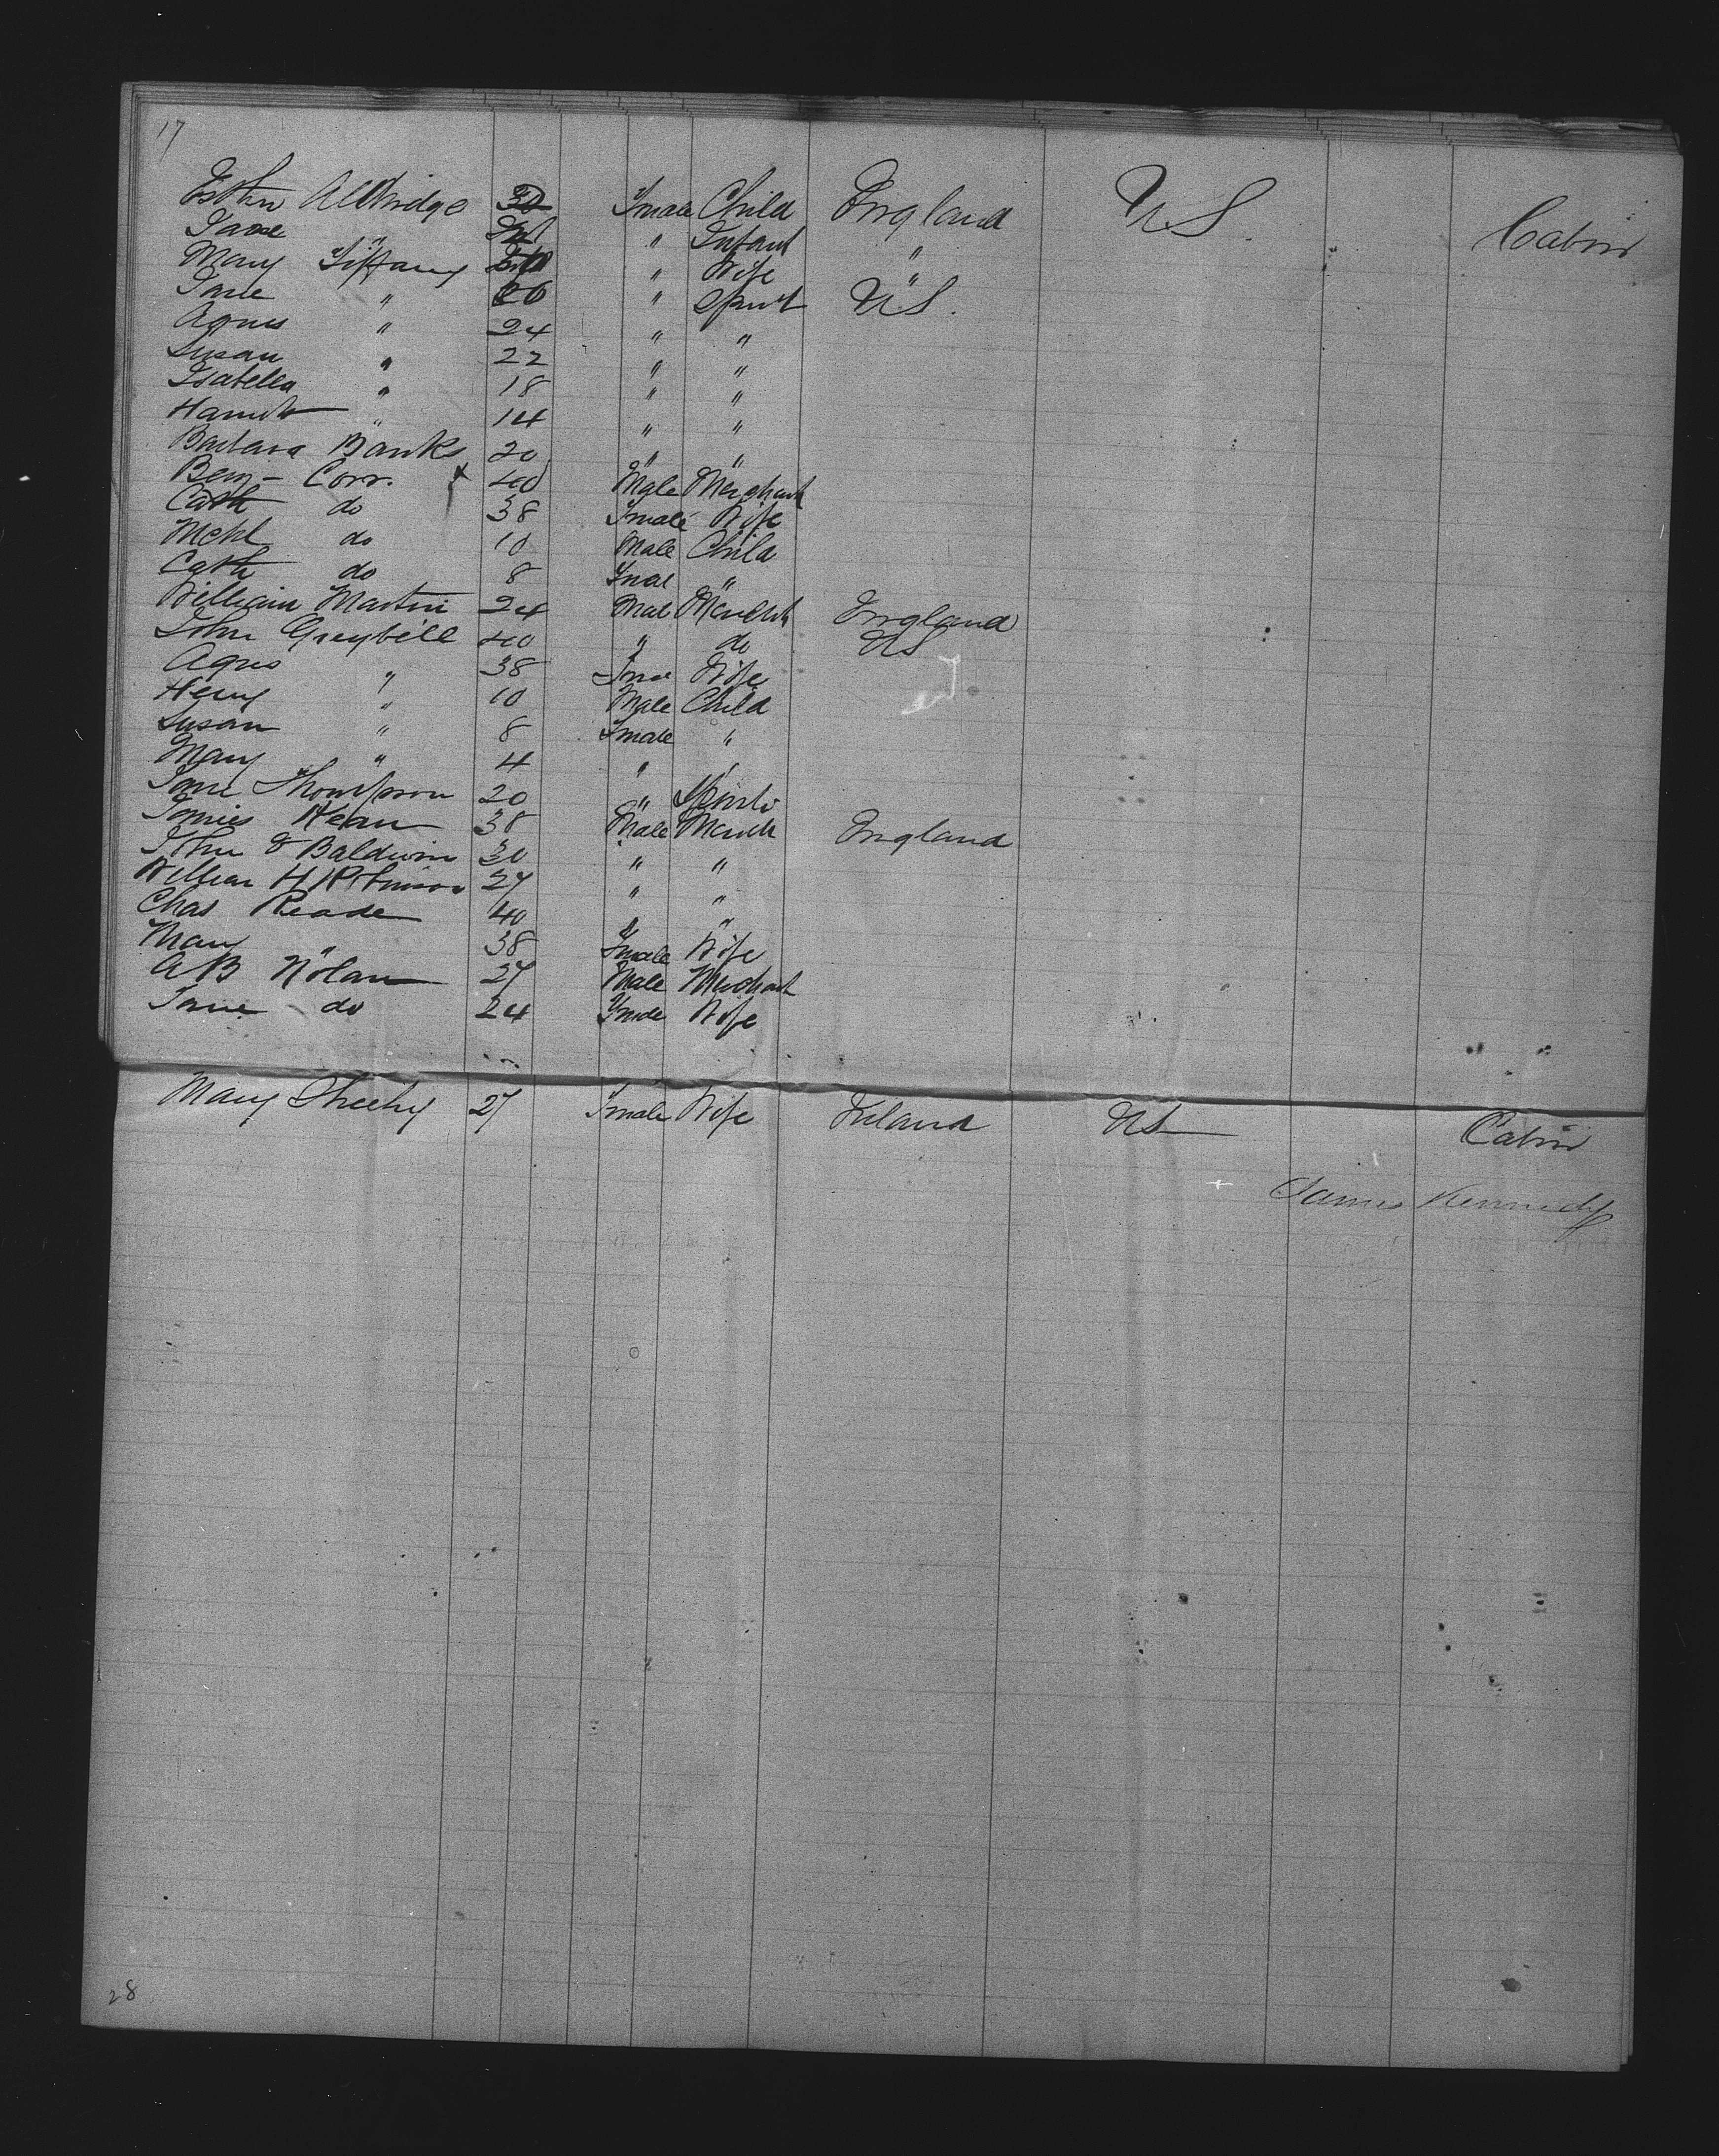 17
Esther Aldridge 30 Fmale Child England US Cabin
Jane " Inf " Infant "
Mary Tiffany " Wife "
Jane " 26 " Spinst US
Agnes " 24 " "
Susan " 22 " "
Isabella " 18 " "
Harriet " 14 " "
Barbara Banks 20 " "
Benj - Corr. x 40 Male Merchant
Cath do 38 Fmale Wife
Mchl do 10 Male Child
Cath do 8 Fmal "
William Martin 24 Mal Merchnt England
John Graybill 40 " do US
Agnes " 38 Fmal Wife
Henry " 10 Male Child
Susan " 8 Fmale "
Mary " 4 " "
Jane Thompson 20 " Spinstr
James Kean 38 Male Merch England
John & Baldwin 30 " "
William H Robinson 27 " "
Chas Reade 40 " "
Mary " 38 Fmale Wife
AB Nolan 27 Male Merchant
Jane do 24 Fmale Wife
Mary Sheehy 27 Fmale Wife Ireland US Cabin
James Kennedy
28